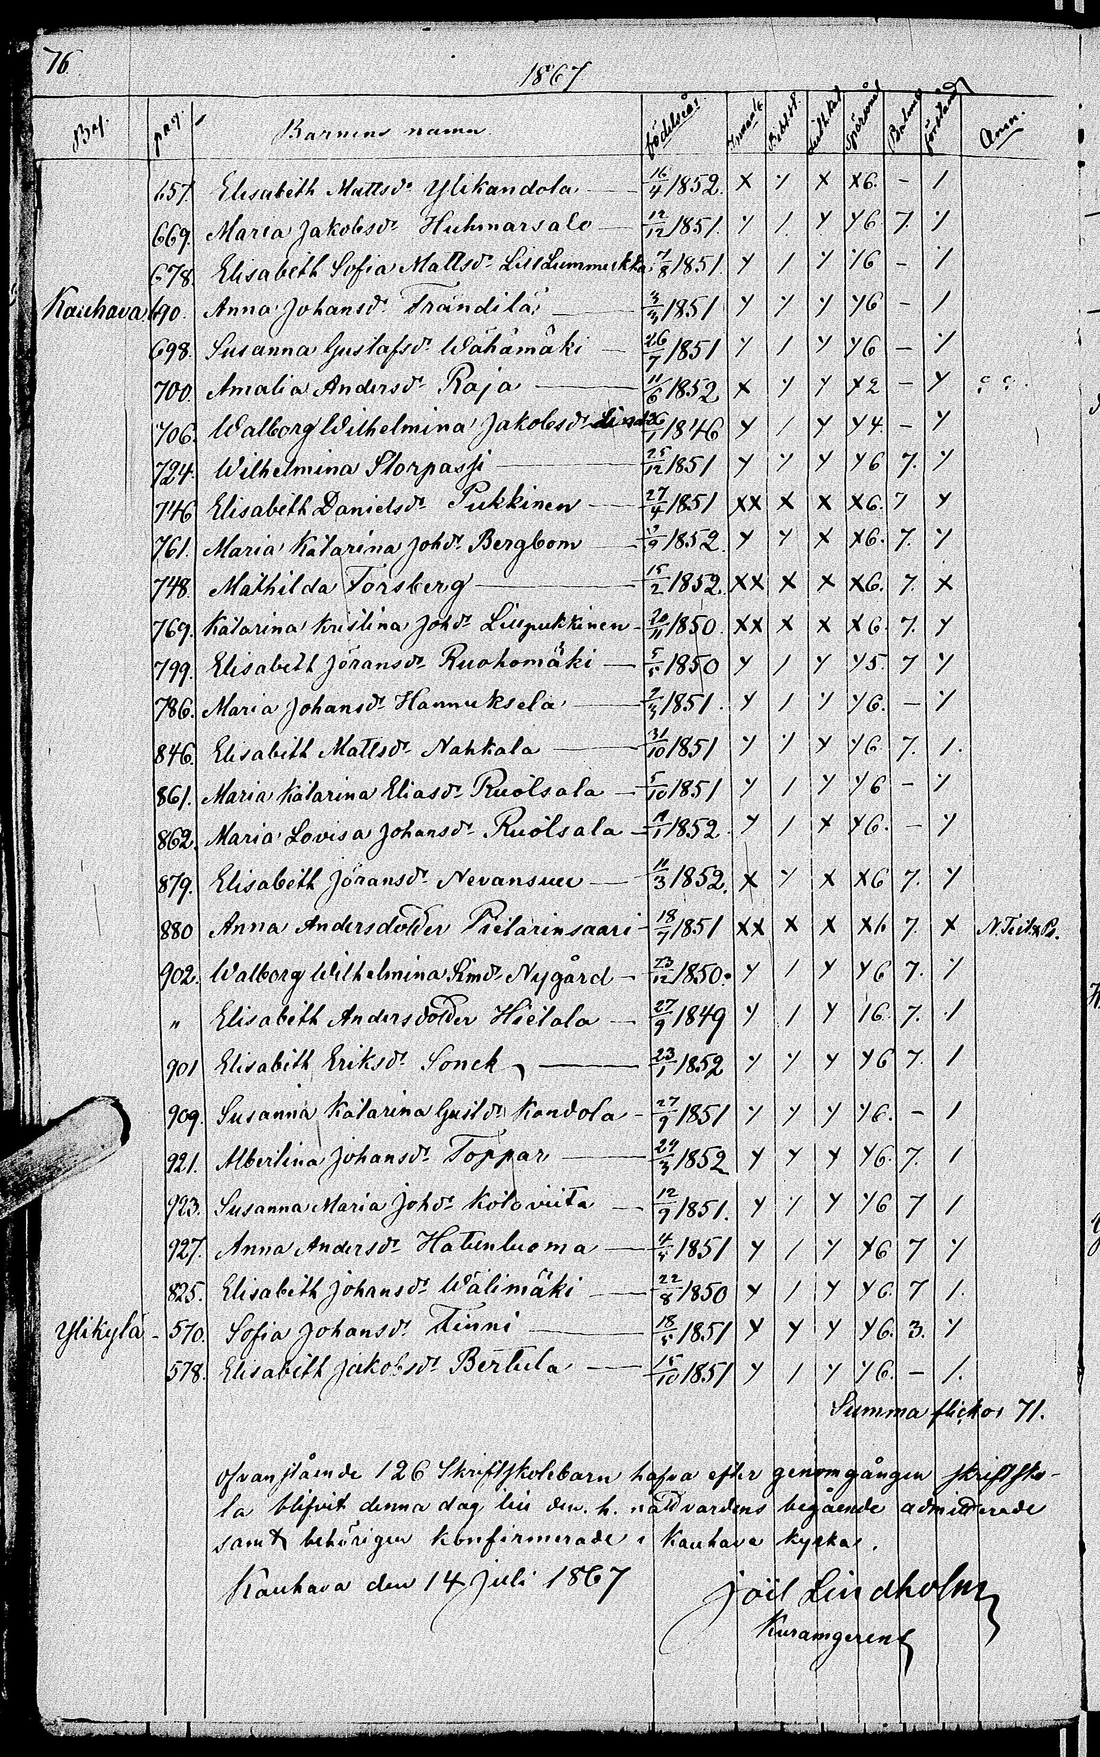 76.
1867
By. pag. Barnens namn födelseår Innanl. Spörsmål förstånd Anm.
657. Elisabeth Mattsdr Ylikandola 16/4 1852. x x x6. -
669. Maria Jakobsdr Huhmarsalo 12/12 1851. 7.
678. Elisabeth Sofia Mattsdr 7/8 1851 -
Kauhava 690. Anna Johansdr Frändilä 3/3 1851 -
698. Susanna Gustafsdr Wähämäki 26/7 1851 -
700. Amalia Andersdr Raja 11/6 1852 -
706. Walborg Wilhelmina Jakobsdr 1846 -
724. Wilhelmina Storpassi 25/12 1851 7.
746 Elisabeth Danielsdr Pukkinen 27/4 1851 xx x x x6. 7
761. Maria Katarina Johdr Bergbom 1852. x x6. 7.
748. Mathilda Forsberg 15/2 1852. xx x x x6. 7. x
769. Katarina Kristina Johdr Liupukkinen 20/11 1850. xx x x x6. 7.
799. Elisabeth Göransdr Ruohomäki 5/5 1850 7
786. Maria Johansdr Hannuksela 2/3 1851. -
846. Elisabeth Mattsdr Nahkala 31/10 1851 7. 1.
861. Maria Katarina Eliasdr Ruotsala 5/10 1851 -
862. Maria Lovisa Johansdr Ruotsala 1852. -
879. Elisabeth Göransdr Nevansuu 11/3 1852. x x x6 7.
880 Anna Andersdotter Pietarinsaari 18/7 1851 xx x x x6 7. x
902. Walborg Wilhelmina Nygård 23/12 1850. 7.
" Elisabeth Andersdotter Hietala 27/9 1849 7.
901 Elisabeth Eriksdr Sonck 23/1 1852 7.
909. Susanna Katarina Gustdr Kandola 27/9 1851 -
921. Albertina Johansdr Toppar 24/3 1852 7.
923. Susanna Maria Johdr Kotoviita 12/9 1851. 7
927. Anna Andersdr Hatunluoma 4/5 1851 7
825. Elisabeth Johansdr Wälimäki 22/8 1850 7 1.
Ylikylä - 570. Sofia Johansdr Finni 18/5 1851 3.
578. Elisabeth Jakobsdr Bertula 15/10 1851 - 1.
Summa flickor 71.
Ofvanstående 126 Skriftskolebarn hafva efter genomgången skriftsko-
la blifvit denna dag till den h. nattvardens begående admitterade
samt behörigen konfirmerade i Kauhava kyrka.
Kauhava den 14 Juli 1867
Joël Lindholm
Kuramgerent